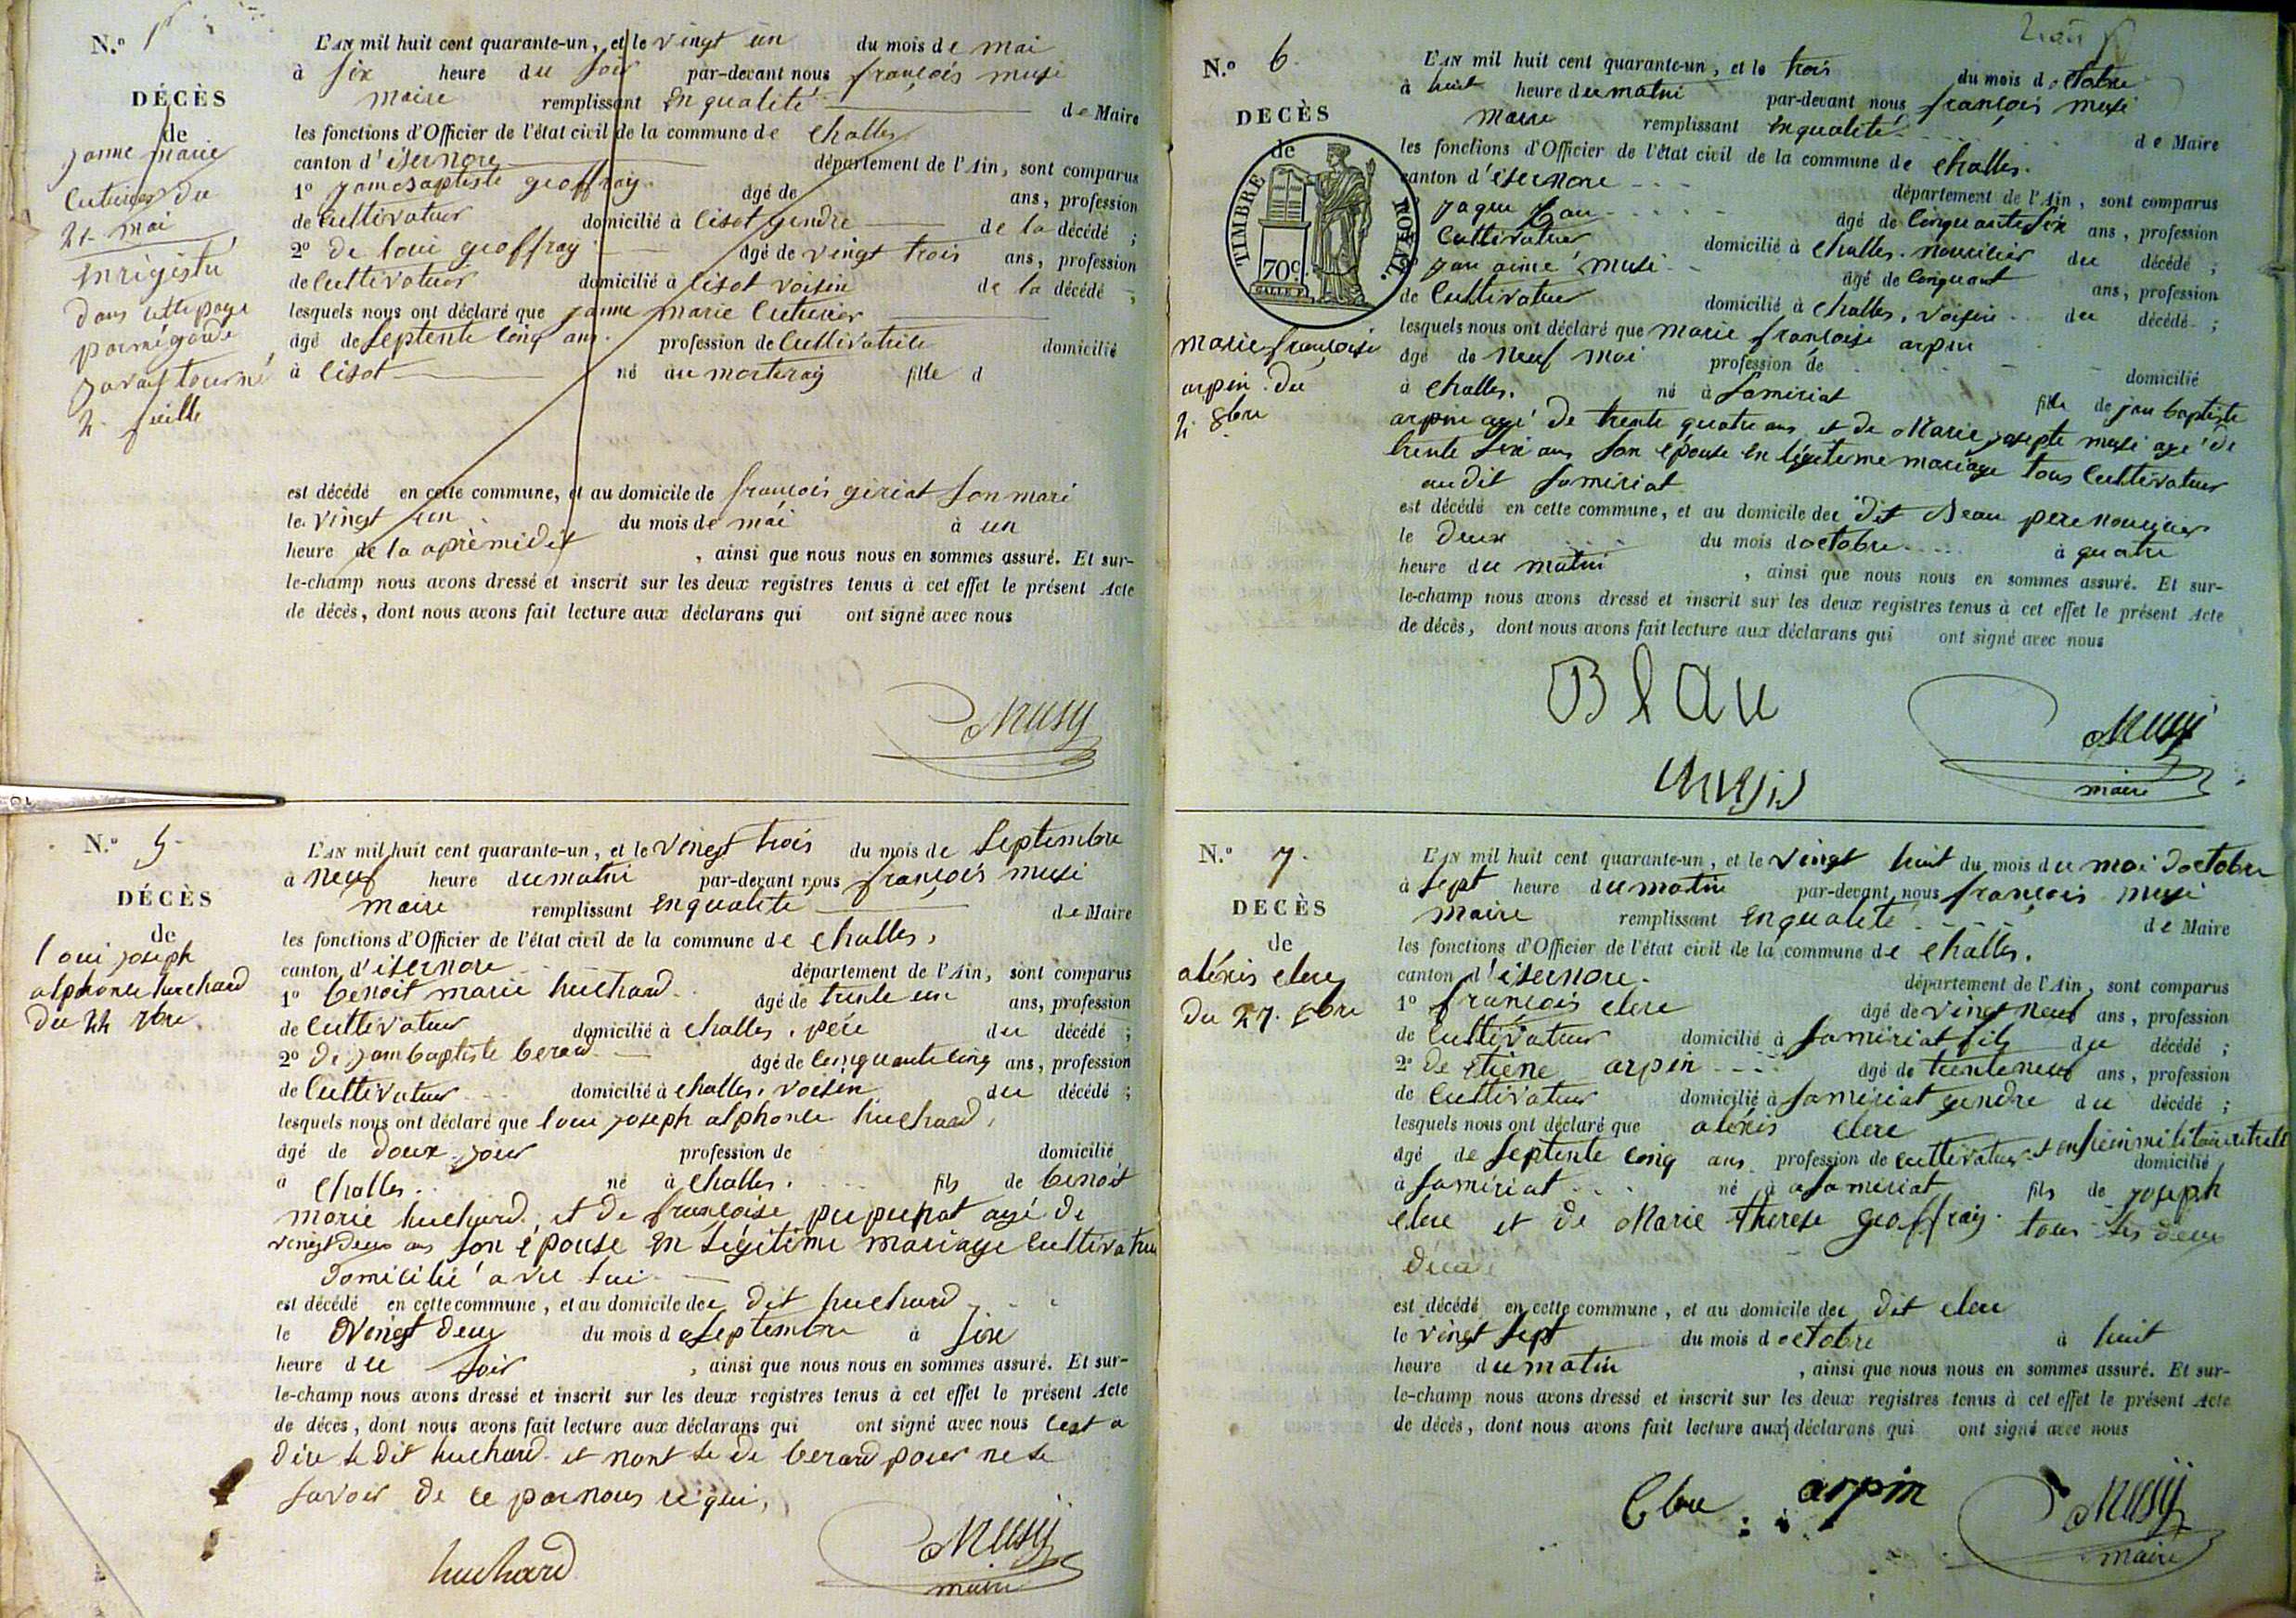 N.o 1
DÉCÈS
de
janne marie
cuturier du
21 mai
enrigistré
dans cette page
par mégarde
javais tourné
2 feuille
L'AN mil huit cent quarante-un, et le vingt un du mois de mai
à six heure du soir par-devant nous françois musi
maire remplissant en qualité de Maire
les fonctions d'Officier de l'état civil de la commune de challes
canton d'isernore département de l'Ain, sont comparus
1o geoffray âgé de ans, profession
de cultivateur domicilié à cisot gendre de la décédé ;
2o de loui geoffray âgé de vingt trois ans, profession
de cultivateur domicilié à cisot voisin de la décédé ;
lesquels nous ont déclaré que janne marie cuturier
âgé de septente cinq ans. profession de cultivatrice domicilié
à cisot né au morteray fille d
est décédé en cette commune, et au domicile de françois giriat son mari
le vingt un du mois de mai à un
heure de la aprèmidit , ainsi que nous nous en sommes assuré. Et sur-
le-champ nous avons dressé et inscrit sur les deux registres tenus à cet effet le présent Acte
de décès, dont nous avons fait lecture aux déclarans qui ont signé avec nous
Musy
N.o 5
DÉCÈS
de
loui joseph
alphonse huchard
du 22 7bre
L'AN mil huit cent quarante-un, et le vingt trois du mois de septembre
à neuf heure du matin par-devant nous françois musi
maire remplissant en qualité de Maire
les fonctions d'Officier de l'état civil de la commune de challes,
canton d'isernore département de l'Ain, sont comparus
1o benoit marie huchard âgé de trente un ans, profession
de cultivateur domicilié à challes, père du décédé ;
2o de jean baptiste berard âgé de cinquante cinq ans, profession
de cultivateur domicilié à challes, voisin du décédé ;
lesquels nous ont déclaré que loui joseph alphonse huchard,
âgé de doux jour profession de domicilié
à challes. né à challes. fils de benoit
marie huchard, et de françoise pupunat agé de
vingt deux ans son épouse en légitime mariage cultivateur
domicilié avec lui
est décédé en cette commune, et au domicile du dit huchard
le vingt deux du mois de septembre à six
heure du soir , ainsi que nous nous en sommes assuré. Et sur-
le-champ nous avons dressé et inscrit sur les deux registres tenus à cet effet le présent Acte
de décès, dont nous avons fait lecture aux déclarans qui ont signé avec nous cest a
dire le dit huchard et nont le de berard pour ne le
savoir de ce par nous requi,
huchard
Musy
maire
N.o 6.
DECÈS
de
TIMBRE ROYAL.
70c
marie françoise
arpin du
2 8bre
L'AN mil huit cent quarante-un, et le trois du mois d'octobre
à huit heure du matin par-devant nous françois musi
maire remplissant en qualité de Maire
les fonctions d'Officier de l'état civil de la commune de challes.
canton d'isernore département de l'Ain, sont comparus
jaque âgé de cinquante six ans, profession
cultivateur domicilié à challes. nouricier du décédé ;
jan aimé musi âgé de cinquant ans, profession
de cultivateur domicilié à challes, voisin du décédé ;
lesquels nous ont déclaré que marie françoise arpin
âgé de neuf moi profession de domicilié
à challes. né à samiriat fille de jan baptiste
arpin agé de trente quatre ans et de Marie josepte musi agé de
trente six ans son épouse en légiteme mariage tous cultivateur
audit samiriat
est décédé en cette commune, et au domicile du dit Beau pere nouricier
le deux du mois d'octobre à quatre
heure du matin , ainsi que nous nous en sommes assuré. Et sur-
le-champ nous avons dressé et inscrit sur les deux registres tenus à cet effet le présent Acte
de décès, dont nous avons fait lecture aux déclarans qui ont signé avec nous
Blau
Musy
maire
N.o 7.
DECÈS
de
aléxis clerc
du 27. 8bre
L'AN mil huit cent quarante-un, et le vingt huit du mois du moi doctobre
à sept heure du matin par-devant nous françois musi
maire remplissant en qualité de Maire
les fonctions d'Officier de l'état civil de la commune de challes.
canton d'isernore. département de l'Ain, sont comparus
1o françois clerc âgé de vingt neuf ans, profession
de cultivateur domicilié à samiriat fils du décédé ;
2o de etiene arpin âgé de trente neuf ans, profession
de cultivateur domicilié à samiriat gendre du décédé ;
lesquels nous ont déclaré que aléxis clerc
âgé de septente cinq ans profession de cultivateur et ensien militaire domicilié
à samiriat né à samiriat fils de joseph
clerc et de Marie therese geoffray. tous les deux
décédé
est décédé en cette commune, et au domicile du dit clerc
le vingt sept du mois d'octobre à huit
heure du matin , ainsi que nous nous en sommes assuré. Et sur-
le-champ nous avons dressé et inscrit sur les deux registres tenus à cet effet le présent Acte
de décès, dont nous avons fait lecture aux déclarans qui ont signé avec nous
Clerc arpin
Musy
maire